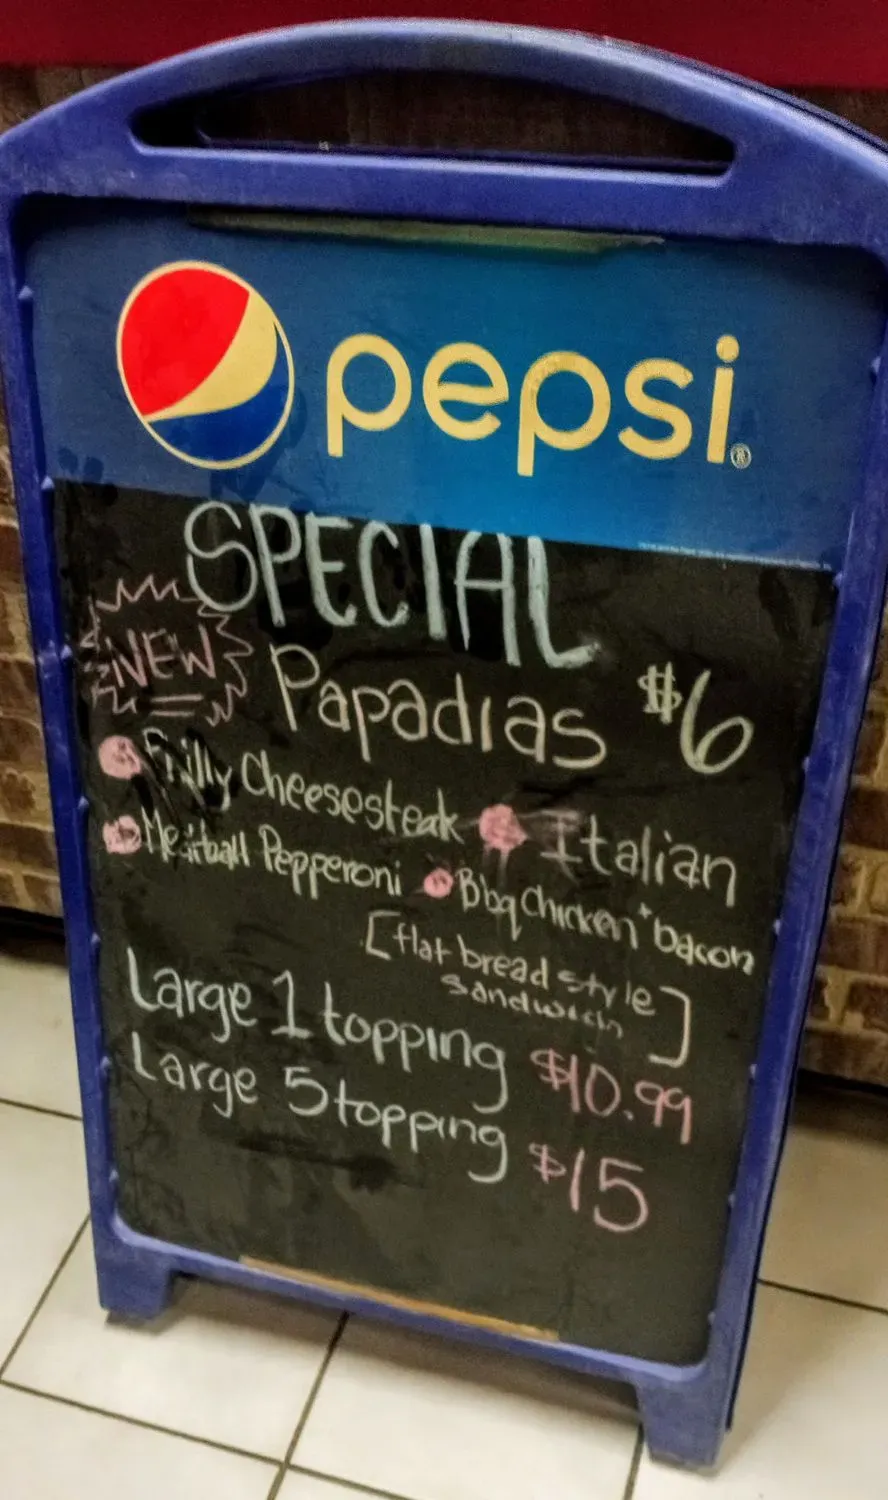 pepsi®
SPECIAL
NEW Papadias $6
Philly Cheesesteak Italian
Meatball Pepperoni Bbq Chicken + bacon
[flat bread style
sandwich]
Large 1 topping $10.99
Large 5 topping $15